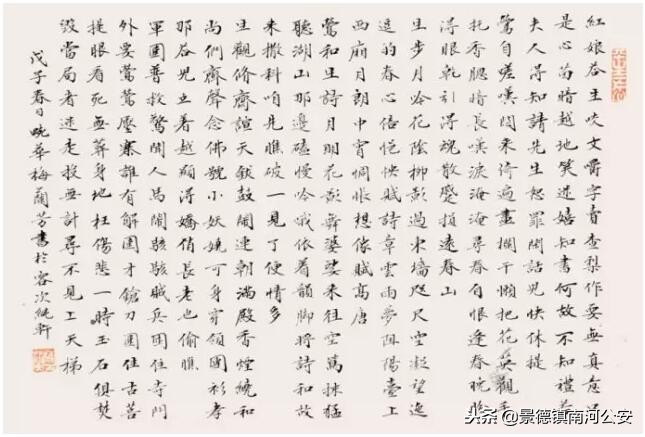 紅娘答生咬文嚼字肯查梨作妄無真意這
是心苗暗越地笑迷嬉知書何故不知禮若
夫人得知請先生恕罪閑話兒快休提
鶯自嗟嘆悶來倚遍畫欄干懶把花英觀手
托香腮暗長嘆淚淹淹尋春自恨逢春晚盼
得眼乾引得魂散蹙損遠春山
生步月吟花陰柳影過東墻咫尺空凝望迤
逗的春心倍悒怏賦詩章雲雨夢阻陽臺上
西廂月朗中宵惆悵想像賦高唐
鶯和生詩月明花影舞婆娑來往空萬抹猛
聽湖山那邊磕慢吟哦依着韻腳將詩和故
來撒科咱先瞧破一見了便情多
生觀僧齋諠天鈸鼓鬧連朝滿殿香煙繞和
尚們齊聲念佛號小妖嬈可身穿領團衫孝
那答兒立着越顯得嬌俏長老也偷瞧
軍圍普救驚聞人馬鬧駭駭賊兵困住寺門
外要鶯鶯壓寨誰有解圍才鎗刀圍住古菩
提眼看死無葬身地枉傷悲一時玉石俱焚
毀當局者迷走投無計尋不見上天梯
戊子春日畹華梅蘭芳書於容次純軒
头条 @景德镇南河公安